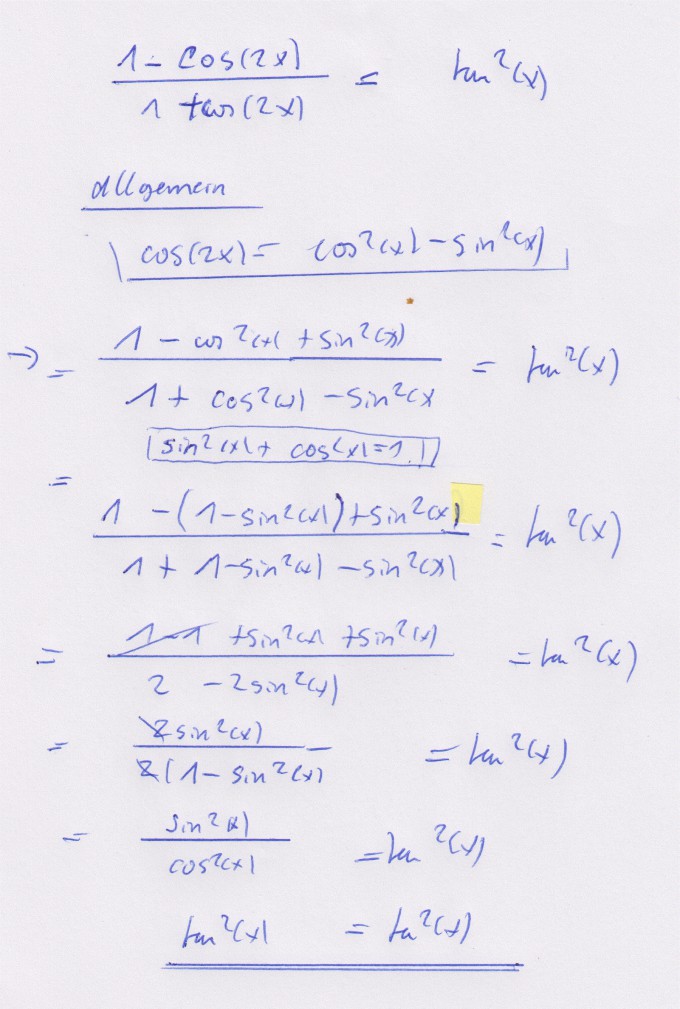 1 - cos(2x) / 1 + cos(2x) = tan²(x)
allgemein
cos(2x) = cos²(x) - sin²(x)
→ = 1 - cos²(x) + sin²(x) / 1 + cos²(x) - sin²(x = tan²(x)
sin²(x) + cos²(x) = 1 !
= 1 - (1 - sin²(x)) + sin²(x) / 1 + 1 - sin²(x) - sin²(x) = tan²(x)
= 1 - 1 + sin²(x) + sin²(x) / 2 - 2sin²(x) = tan²(x)
= 2sin²(x) / 2(1 - sin²(x) = tan²(x)
= sin²(x) / cos²(x) = tan²(x)
tan²(x) = tan²(x)